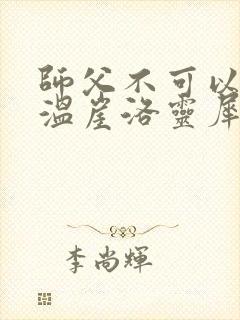 師父不可以
溫崖洛靈犀
李尚輝